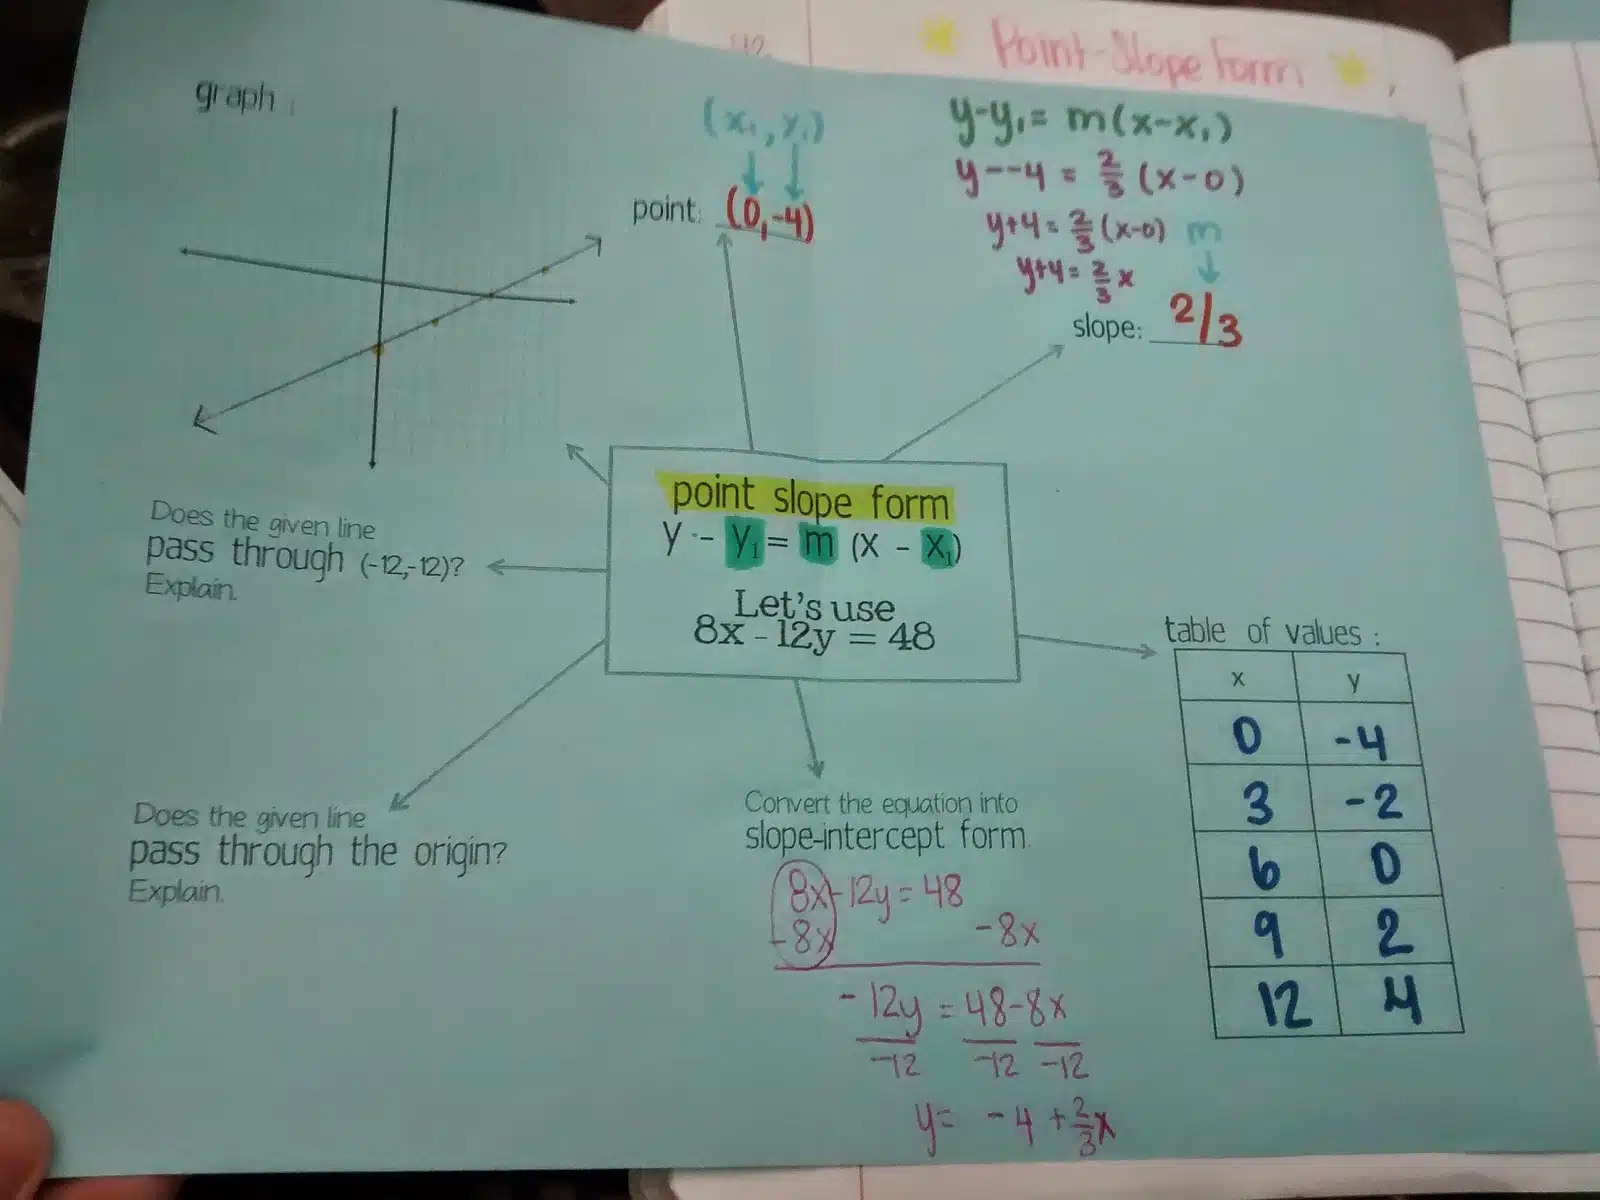 42
Point-Slope Form
graph :
(x₁, y₁)
point: (0,-4)
y-y₁= m(x-x₁)
y--4 = 2/3 (x-0)
y+4= 2/3 (x-0)
y+4= 2/3 x
m
slope: 2/3
point slope form
y - y₁ = m (x - x₁)
Let's use
8x - 12y = 48
Does the given line
pass through (-12,-12)?
Explain.
Does the given line
pass through the origin?
Explain.
Convert the equation into
slope-intercept form.
8x-12y = 48
-8x -8x
-12y = 48-8x
-12 -12 -12
y= -4 + 2/3 x
table of values :
x y
0 -4
3 -2
6 0
9 2
12 4